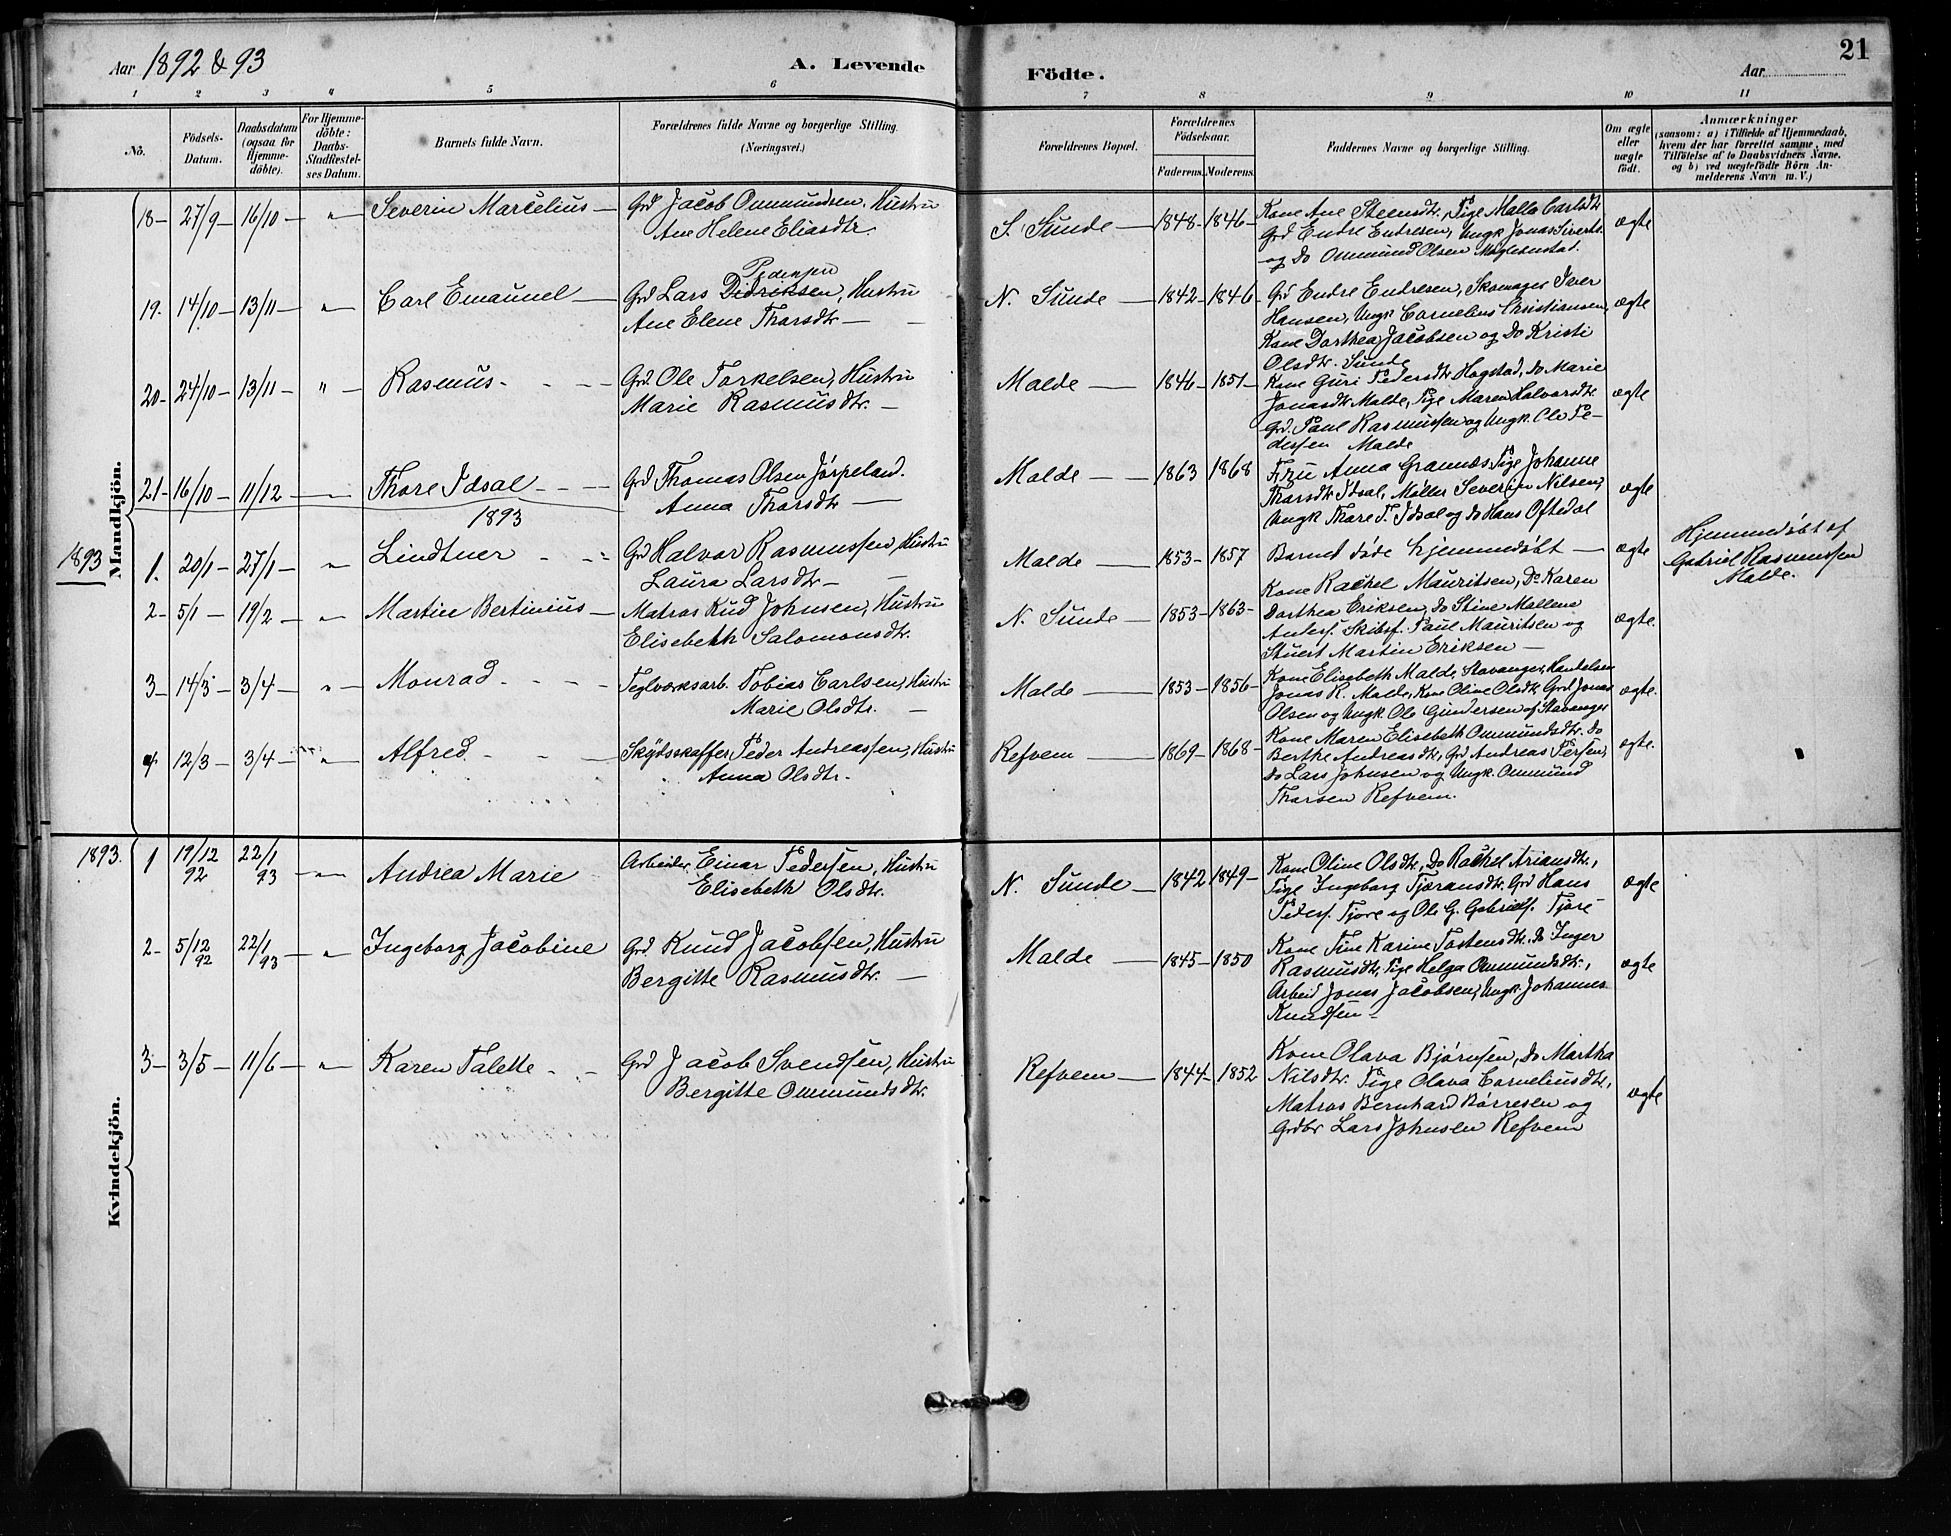 Aar 1892 & 93
A. Levende
Födte.
Aar
21
1 2 3 4 5 6 7 8 9 10 11
No.
Födsels-
Datum.
Daabsdatum
(ogsaa for
Hjemme-
döbte).
For Hjemme-
döbte:
Daabs-
Stadfæstel-
ses Datum.
Barnets fulde Navn.
Forældrenes fulde Navne og borgerlige Stilling.
(Næringsvei.)
Forældrenes Bopæl.
Forældrenes
Födselsaar.
Faderens. Moderens.
Faddernes Navne og borgerlige Stilling.
Om ægte
eller
uægte
födt.
Anmærkninger
(saasom: a) i Tilfælde af Hjemmedaab,
hvem der har forrettet samme, med
Tilföielse af to Daabsvidners Navne.
og b) ved uægtefödte Börn An-
melderens Navn m. V.)
Mandkjön.
18- 27/9- 16/10- " Severin Marcelius- Grd Jacob Ommundsen, Hustru
Ane Helene Eliasdtr.
S. Sunde - 1848- 1846-
Kone Ane Steensdtr, Pige Malla Carlsdtr
Grd Endre Endresen, Ungk Jonas Siverts.
og Do Ommund Olsen
ægte
19. 14/10- 13/11- " Carl Emanuel - Grd Lars Didriksen, Hustru
Pedersen
Ane Elene Thorsdtr -
N. Sunde - 1842- 1846
Grd Endre Endresen, Skomager Iver
Hansen, Ungk Cornelius Christiansen,
Kone Dorthea Jacobsen og Do Kristi
Olsdtr. Sunde
ægte
20- 24/10- 13/11- " Rasmus - Grd. Ole Torkelsen, Hustru
Marie Rasmusdtr. -
Malde - 1846- 1851-
Kone Guri Pedersdtr Hogstad, Do Marie
Jonasdtr Malde, Pige Maren Halvorsdtr.
Grd. Paul Rasmussen og Ungk. Ole Pe-
dersen Malde
ægte
21- 16/10- 11/12 - Thore Idsal - Grd Thomas Olsen Jørpeland.
Anna Thorsdtr -
Malde - 1863 1868
Fru Anna Grannæs Pige Johanne
Thorsdtr Idsal, Møller Severin Nilsen,
Ungk Thore T. Idsal og Do Hans Oftedal
ægte
1893
1893
1. 20/1- 27/1- " Lindtner - Grd Halvor Rasmussen, Hustru
Laura Larsdtr -
Malde - 1853- 1857
Barnet døde hjemmedøbt -
ægte
Hjemmedøbt af
Gabriel Rasmussen
Malde.
2- 5/1- 19/2- " Martin Bertinius- Matros Knud Johnsen, Hustru
Elisebeth Salomonsdtr.
N. Sunde - 1853- 1863-
Kone Rachel Mauritsen, Do Karen
Dorthea Eriksen, Do Stine Mallene
Anders. Skibsf. Paul Mauritsen og
Stuert Martin Eriksen -
ægte.
3- 14/3- 3/4- " Monrad - Teglværksarb. Tobias Carlsen, Hustru
Marie Olsdtr. -
Malde - 1853- 1856-
Kone Elisebeth Malde, Stavanger, Handelsm
Jonas R. Malde, Kone Oline Olsdtr Grd Jonas
Olsen og Ungk. Ole Gundersen af Stavanger
ægte.
4. 12/3- 3/4- " Alfred - Skydsskaffer Peder Andreassen, Hustru
Anna Olsdtr.
Refvem - 1869- 1868-
Kone Maren Elisebeth Ommundsdtr. Do
Berthe Andreasdtr, Grd Andreas Persen,
Do Lars Johnsen og Ungk. Ommund
Thorsen Refvem.
ægte.
Kvindekjön.
1893. 1 19/12 92 22/1 93 - " - Andrea Marie
Arbeider Einar Pedersen, Hustru
Elisebeth Olsdtr.
N. Sunde - 1842 1849-
Kone Oline Olsdtr. Do Rachel Ariansdtr,
Pige Ingeborg Tjøransdtr. Grd Hans
Peders. Tjore og Ole G. Gabriels. Tjore -
ægte
2- 5/12 92 22/1 93 - " Ingeborg Jacobine
Grd. Knud Jacobsen, Hustru
Bergitte Rasmusdtr. -
Malde - 1845- 1850
Kone Tine Karine Tostensdtr. Do Inger
Rasmusdtr. Pige Helga Ommundsdtr,
Arbeid Jonas Jacobsen, Ungk Johannes
Knudsen -
ægte
3- 3/5- 11/6- " Karen Talette -
Grd Jacob Svendsen, Hustru
Bergitte Ommundsdtr.
Refvem - 1844- 1852
Kone Olava Bjørnsen, Do Martha
Nilsdtr. Pige Olava Corneliusdtr,
Matros Bernhard Børresen og
Grdbr Lars Johnsen Refvem
ægte